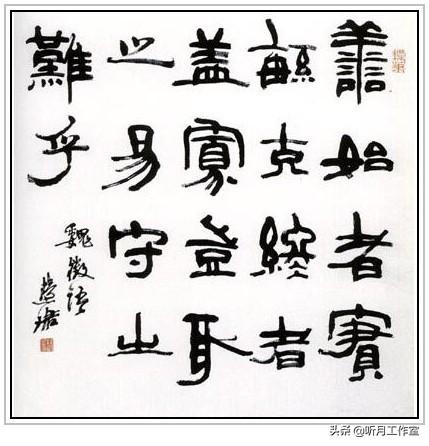 善始者實
繁克終者
蓋寡豈取
之易守之
難乎
魏徵語
头条 @听月工作室